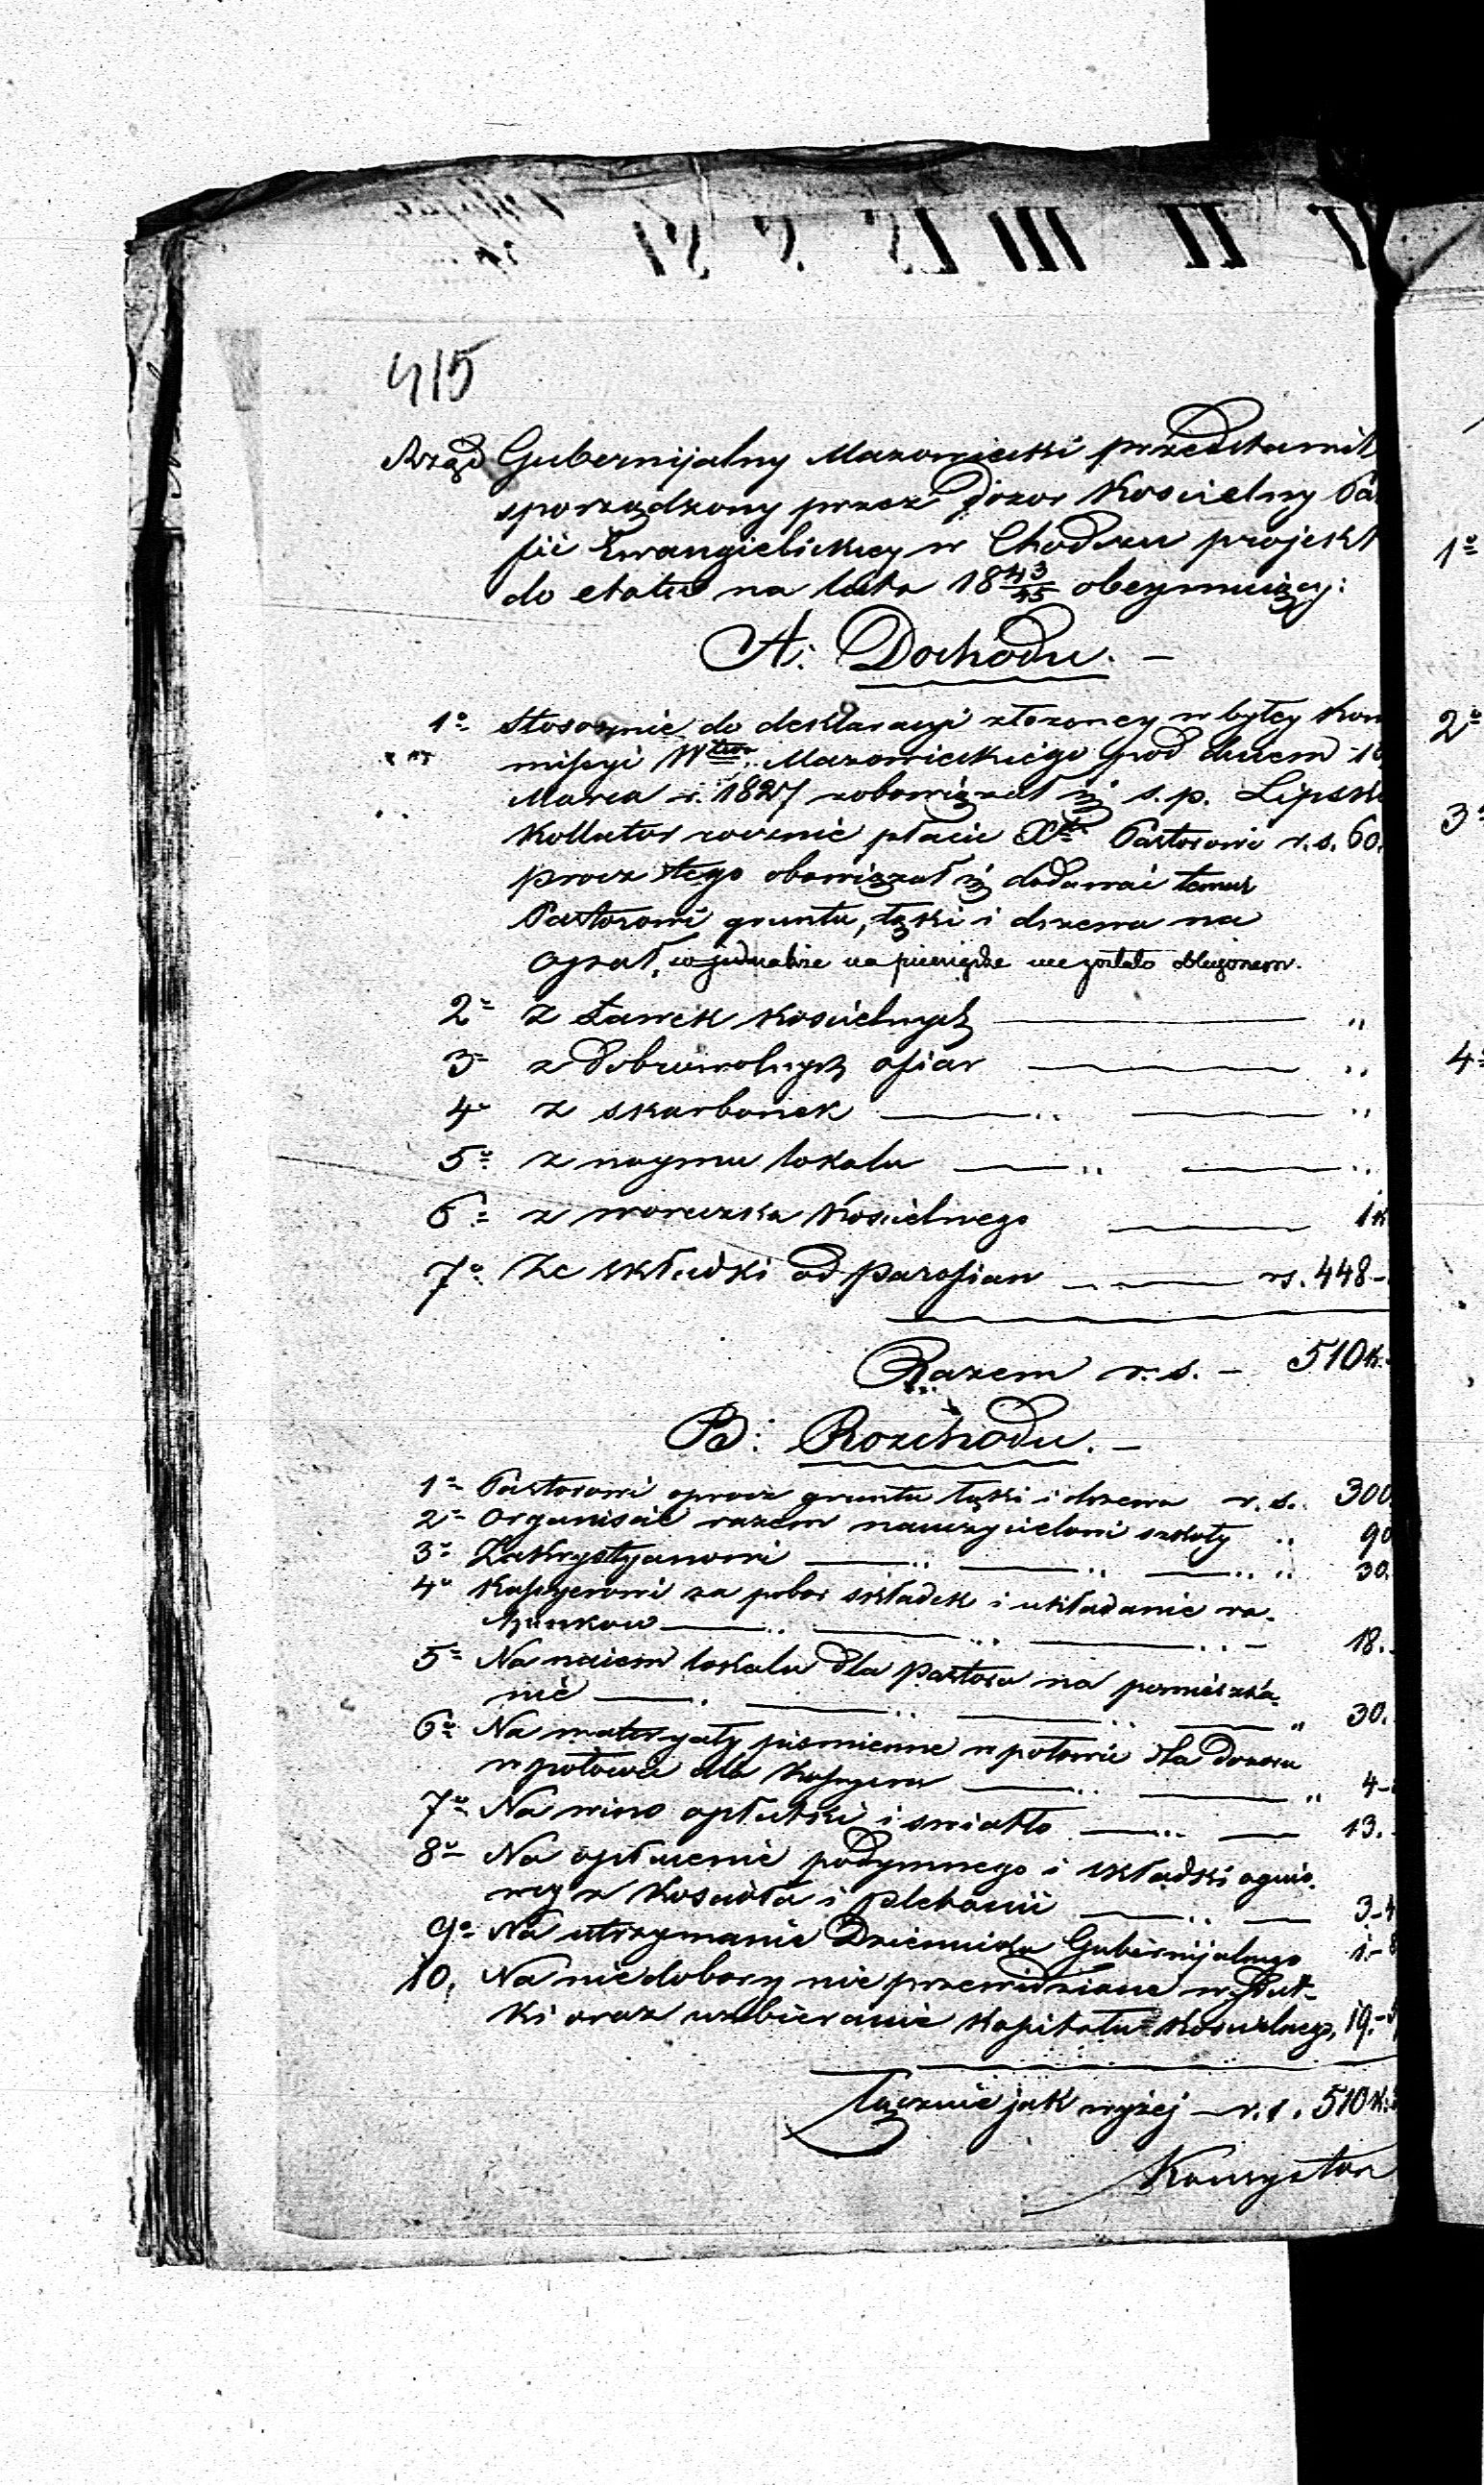 415
Rząd Gubernijalny Mazowiecki przedstawił
sporządzony przez Dozor Kościelny Pa
fii Ewangielickiey w Chodczu projekt
do etatu na lata 18 43/45 obeymuiący:
A: Dochodu. —
1o Stosownie do deklaracyi złożoney w byłey Kom
missyi Wtwa Mazowieckiego pod dniem 16
Marca r. 1827 zobowiązał się s. p. Lipski
Kollator rocznie płacić Xdz Pastorowi r. s. 60.
procz tego obowiązał się dodawać temuż
Pastorowi gruntu, łąki i drzewa na
opał, co jednakże na pieniądze nie zostało obliczonem.
2o Z Ławek Kościelnych — "
3o z Dobrowolnych ofiar — "
4o z skarbonek — "
5o z naymu lokalu — "
6o z woreczka Kościelnego — 1 k
7o Ze składki od Parafian — rs. 448 —
Razem r. s. — 510 k.
B: Rozchodu. —
1o Pastorowi oprocz gruntu łąki i drzewa r. s. 300.
2o Organiscie razem nauczycielowi szkoły " 90
3o Zakrystyanowi — " 30.
4o Kassyerowi za pobor składek i układanie ra-
chunkow — 18.
5o Na naiem lokalu dla Pastora na pomieszka-
nie — " 30.
6o Na materyały pismienne w połowie dla Dozoru
w połowie dla Kassyera — " 4 —
7o Na wino opłatki i swiatło — 13.
8o Na opłacenie podymnego i składki ognio-
wey z Kościoła i Plebanii — 3 — 4
9o Na utrzymanie Dziennika Gubernijalnego 1. — 8
10. Na niedobory nieprzewidziane wydat-
ki oraz uzbieranie Kapitału Kościelnego, 19. —
Łącznie jak wyżej — r. s. 510 k.
Konsystor
1o
2o
3o
4o